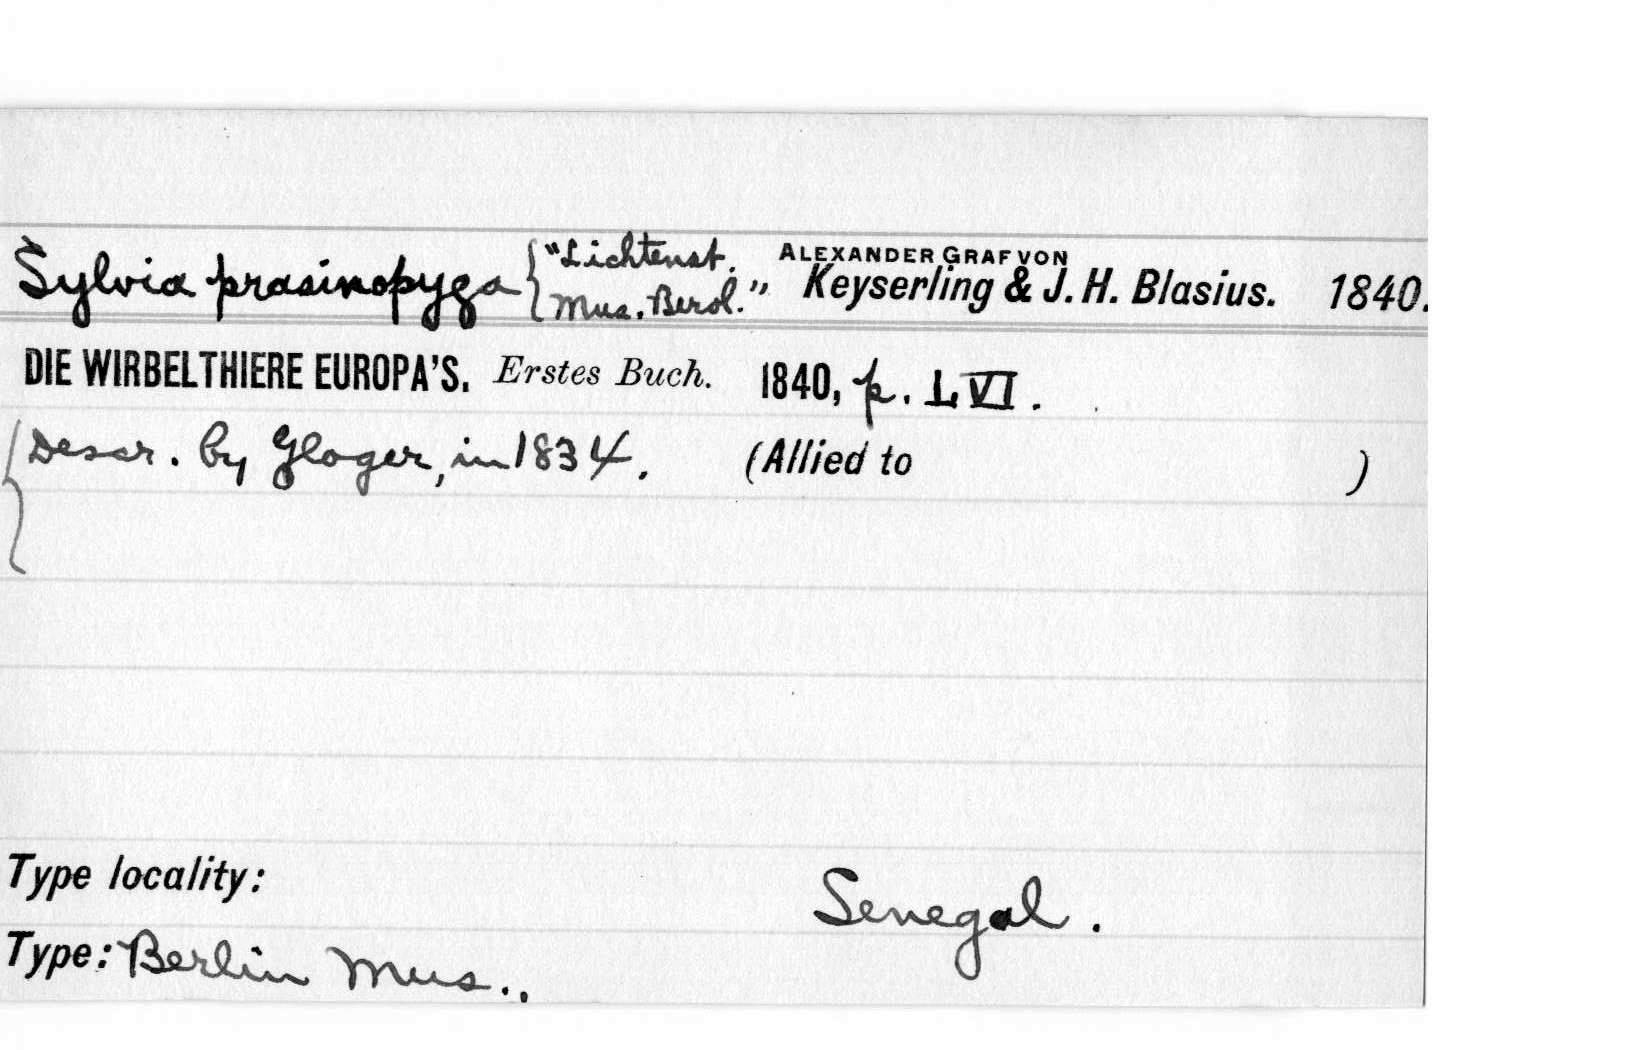 Sylvia prasinopyga { "Lichtenst. Mus. Berol." ALEXANDER GRAF VON Keyserling & J. H. Blasius. 1840.
DIE WIRBELTHIERE EUROPA'S. Erstes Buch. 1840, p. LVI.
{ Descr. by Gloger, in 1834. (Allied to )
Type locality: Senegal.
Type: Berlin Mus..